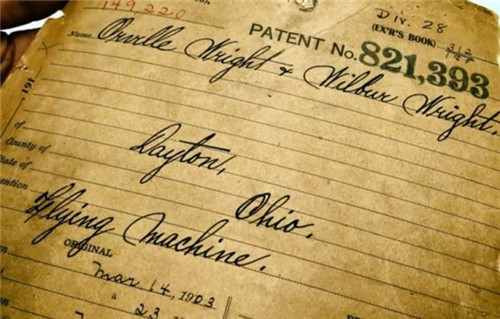 149220
Div. 28
(EX'R'S BOOK)
PATENT No. 821,393
Name, Orville Wright & Wilbur Wright
191
of Dayton,
County of
State of Ohio.
Invention
Flying Machine.
ORIGINAL
Mar 14, 1903
" 23